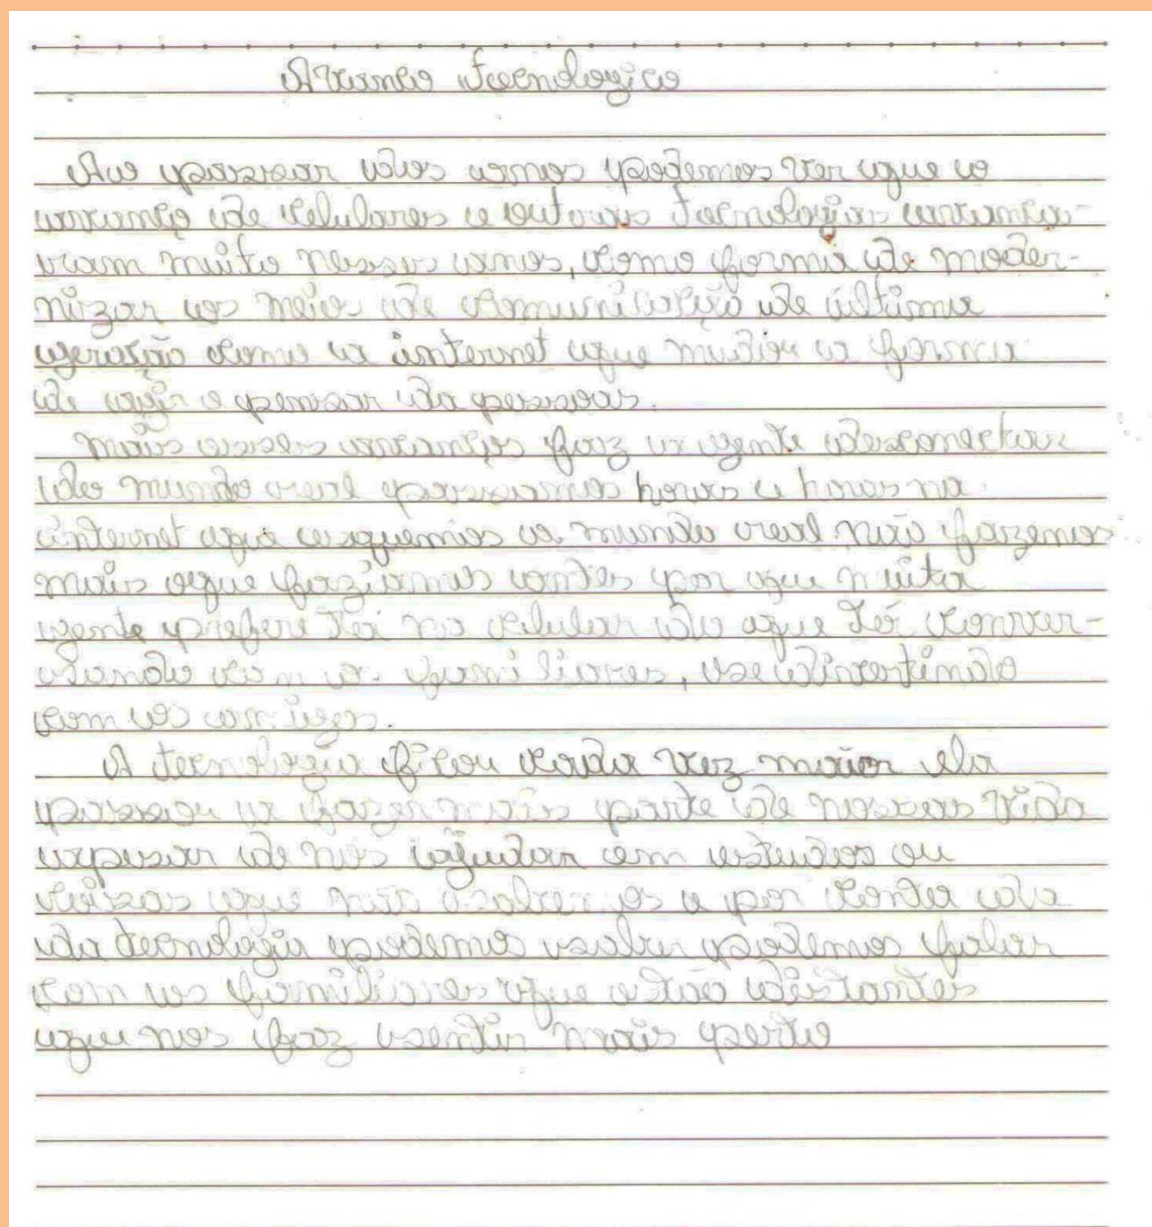 Avanço Tecnologico
Ao passar dos anos podemos ver que o
avanço de celulares e outras tecnologias avança-
ram muito nesses anos, como forma de moder-
nizar os meios de comunicação de última
geração como a internet que mudior a forma
de agir e pensar da pessoas.
Mais esses avanços faz a gente desconectar
do mundo real passamos horas e horas na
internet que esquemos o mundo real não fazemos
mais oque faziamos antes por que muita
gente prefere tá no celular do que tá conver-
sando com os familiares, se divertindo
com os amigos.
A tecnologia ficou cada vez maior ela
passou a fazer mais parte de nossas vida
apesar de nós ajudar em estudos ou
coisas que não sabemos e por conta da
da tecnologia podemos saber podemos falar
com os familiares que estão distantes
que nos faz sentir mais perto